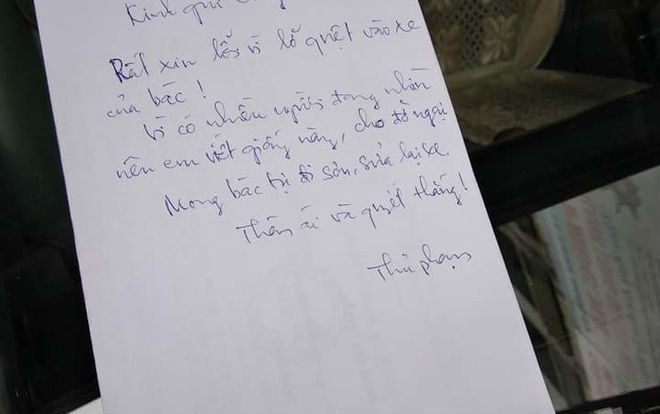 Kính gửi
Rất xin lỗi vì lỡ quệt vào xe
của bác!
Vì có nhiều người đang nhìn
nên em viết giống này, cho đỡ ngại
Mong bác tự đi sơn, sửa lại xe.
Thân ái và quyết thắng!
Thủ phạm